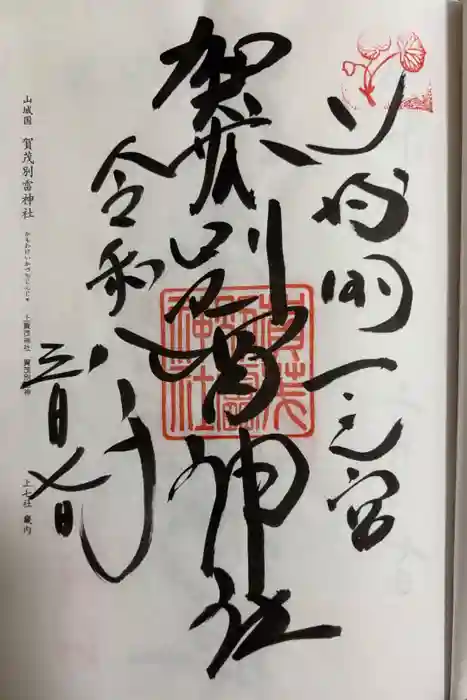 山城国一之宮
賀茂別雷神社
賀茂別雷神社
令和八年
三月七日
山城国 賀茂別雷神社
かもわけいかづちじんじゃ
上賀茂神社 賀茂別雷神
上七社 畿内